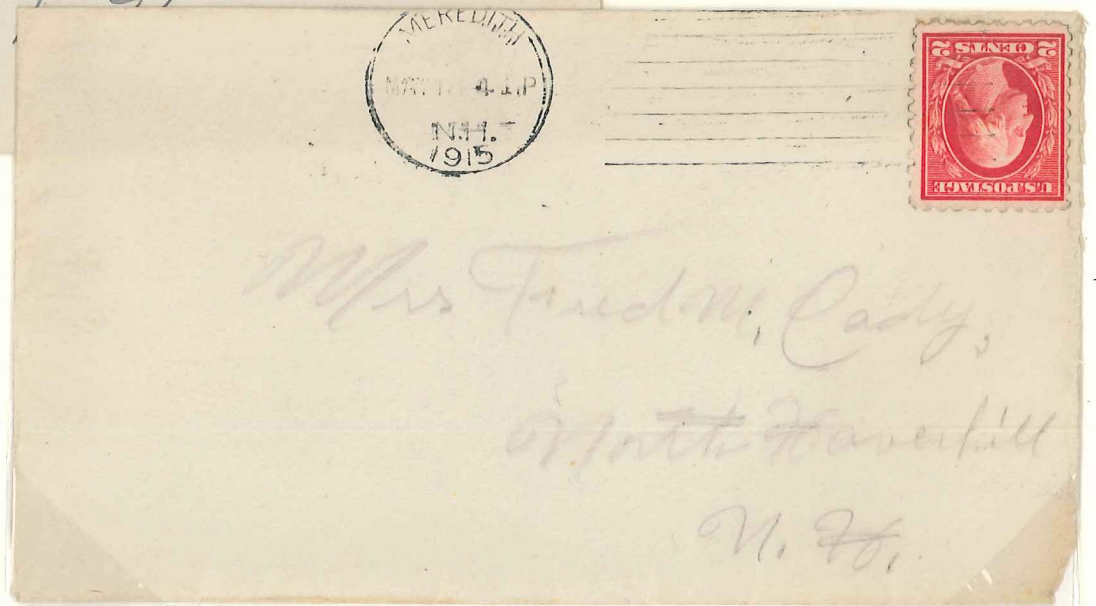 MEREDITH
MAY 4 1 P
N.H.
1915
2 CENTS 2
U.S. POSTAGE
Mrs Fred M. Cady,
North Haverhill
N. H.